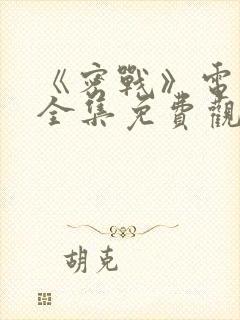 《密戰》電
全集免費觀
胡克